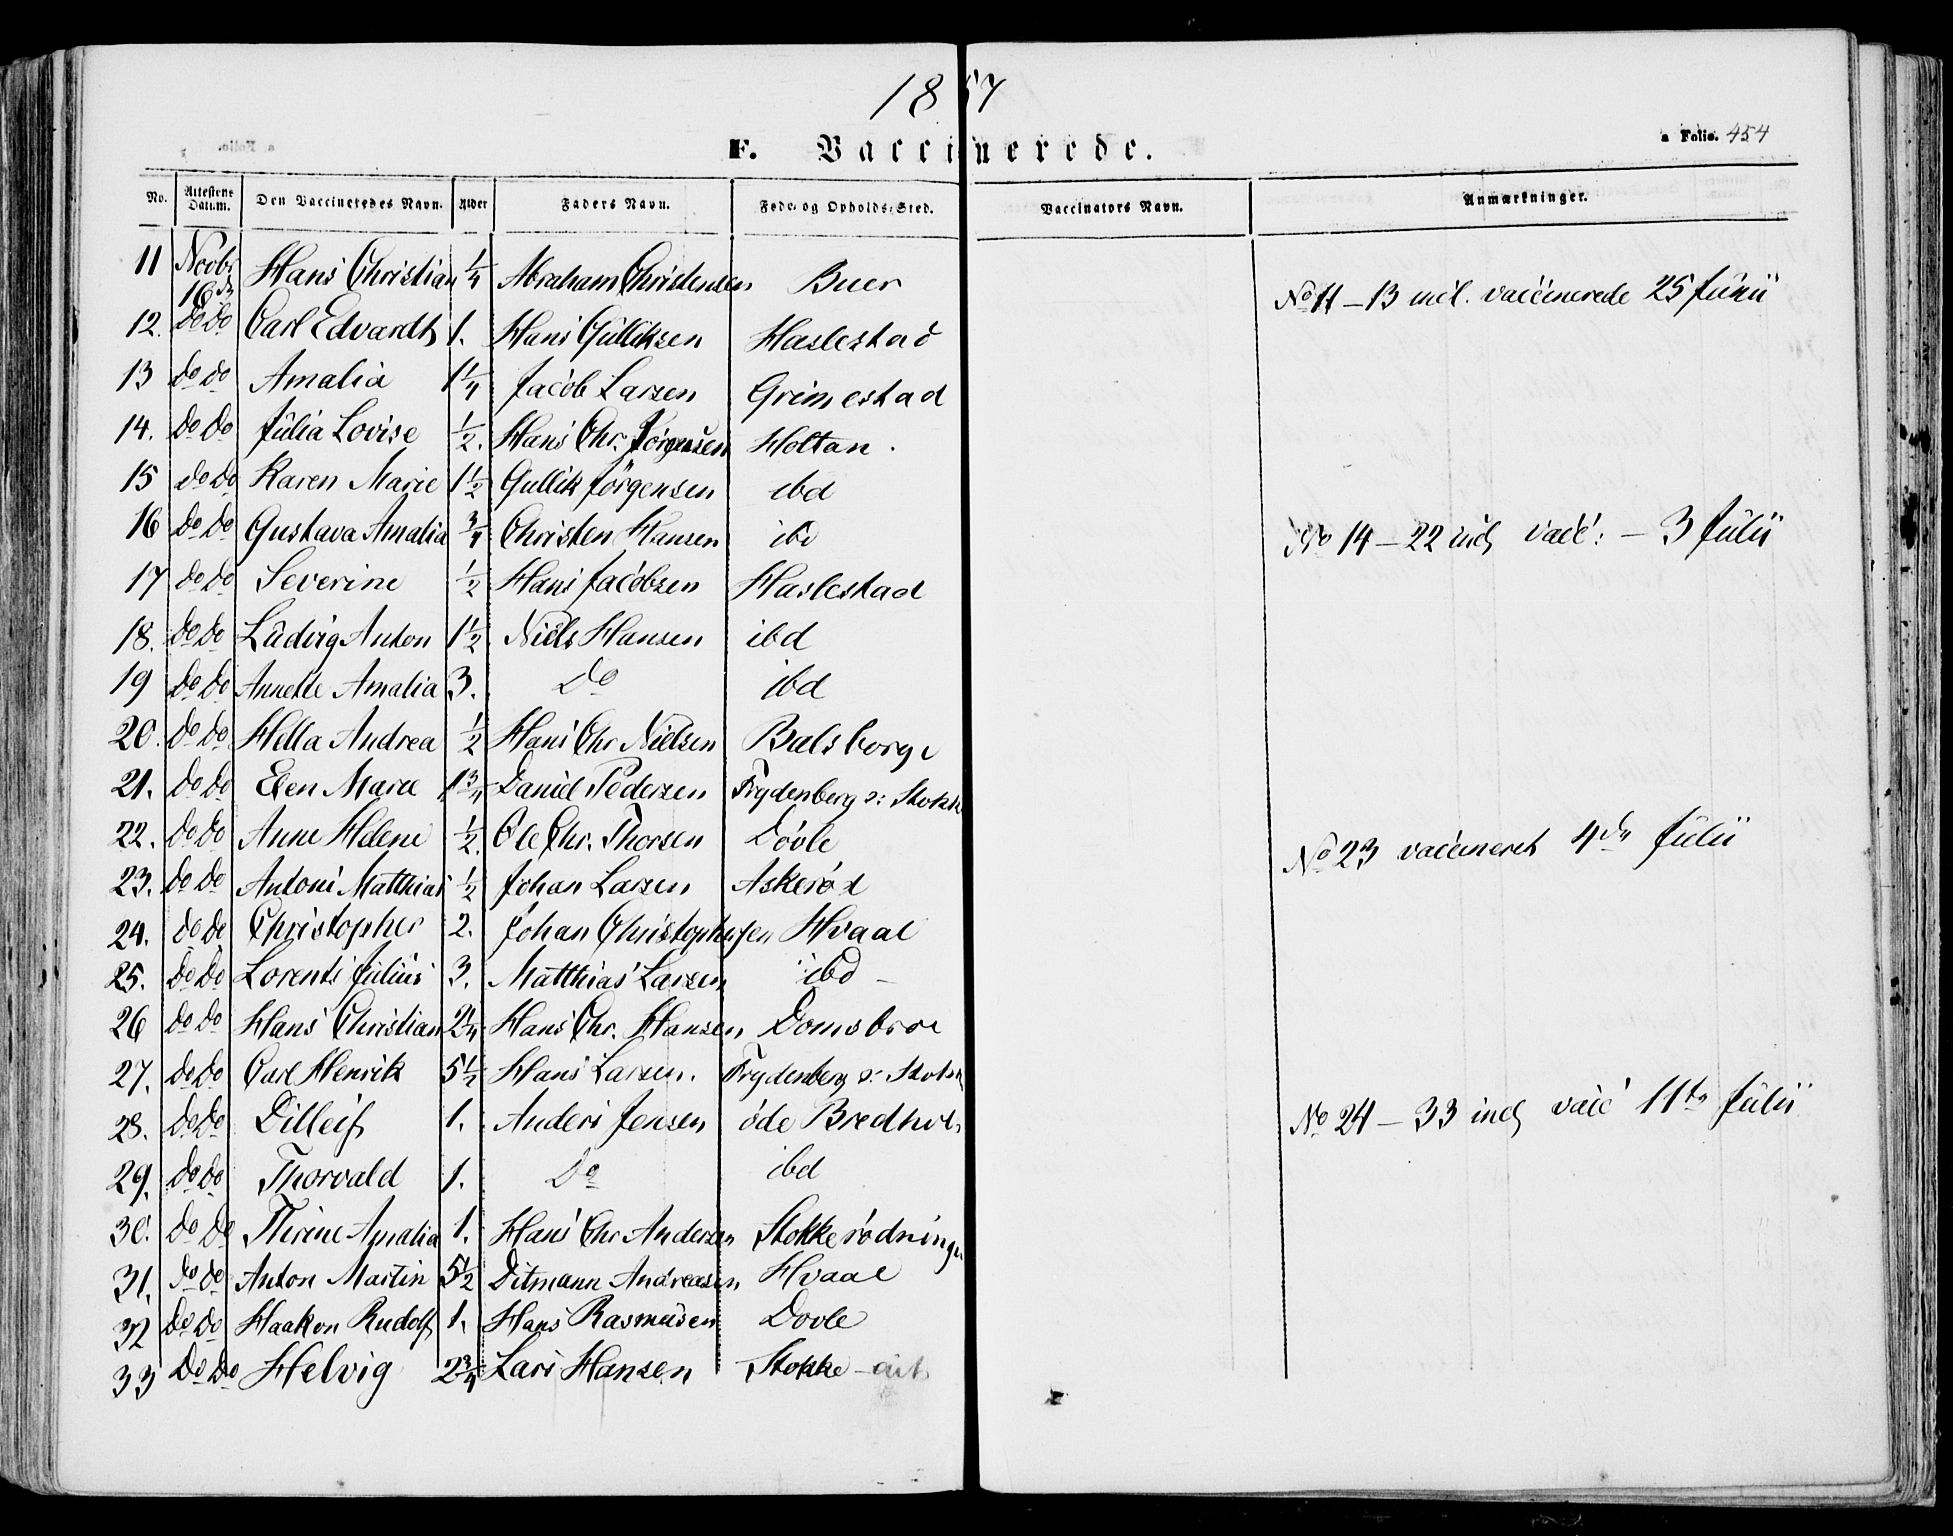 1857
F. Vaccinerede.
a Folio. 454
No. Attestens Datum. Den Vaccineredes Navn. Alder Faders Navn. Føde- og Opholds-Sted. Vaccinators Navn. Anmærkninger.
11 Novbr 16de Hans Christian 1/4 Abraham Christensen Buer
No 11 – 13 incl. vaccinerede 25 Junii
12. do do Carl Edvardt 1. Hans Gulliksen Haslestad
13 do do Amalia 1 1/4 Jacob Larsen Grimestad
14. do do Julia Lovise 1/2. Hans Chr. Jørgensen Holtan.
15 do do Karen Marie 1 1/2 Gullik Jörgensen ibd
16 do do Gustava Amalia 3/4 Christen Hansen ibd
No 14 – 22 incl vacc: – 3 Julii
17 do do Severine 1/2 Hans Jacobsen Haslestad
18. do do Ludvig Anton 1 1/2 Niels Hansen ibd
19 do do Annette Amalia 3. Do ibd
20. do do Hella Andrea 1/2 Hans Chr Nielsen Bulsborge
21. do do Elen Marie 1 3/4 Daniel Pedersen Frydenberg v: Stokke
22. do do Anne Helene 1/2. Ole Chr. Thorsen Dovle
No 23 vaccineret 4de Julii
23. do do Antoni Matthias 1/2 Johan Larsen Askerød
24. do do Christopher 2. Johan Christophersen Hvaal
25. do do Lorents Julius 3. Matthias Larsen ibd –
26 do do Hans Christian 2 1/4 Hans Chr. Hansen Domsbroe
27. do do Carl Henrik 5 1/2 Hans Larsen. Frydenberg v: Stokke
28. do do Dilleif 1. Anders Jensen öde Bredhol
No 24 – 33 incl vacc 11te Julii
29. do do Thorvald 1. Do ibd
30. do do Thrine Amalia 1. Hans Chr Andersen Stokkerødninge
31. do do Anton Martin 5 1/2 Ditmann Andreasen Hvaal
32 do do Haakon Rudolf 1. Hans Rasmusen Dovle
33 do do Helvig 2 3/4 Lars Hansen Stokke –